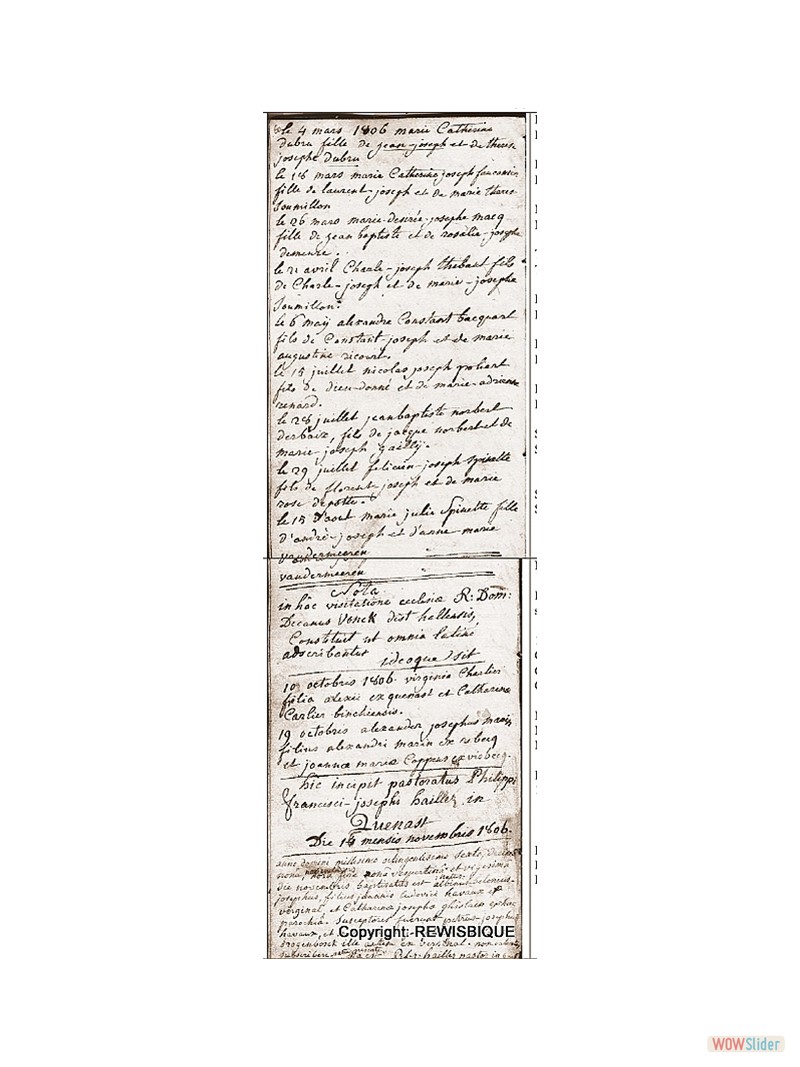 le 4 mars 1806 marie Catherine
dubru fille de jean-joseph et de therese
josephe dubru
le 18 mars marie Catherine joseph
fille de laurent-joseph et de marie therese
Soumillon
le 26 mars marie-desirée-josephe macq
fille de jean baptiste et de rosalie-josephe
demeure.
le 21 avril Charle-joseph thibaut fils
de Charle-joseph et de marie-josephe
Soumillon.
le 6 maÿ alexandre Constant bacquart
fils de Constant joseph et de marie
augustine ricourt.
le 15 juillet nicolas joseph poliart
fils de dieu-donné et de marie-adrienne
renard.
le 28 juillet jeanbaptiste norbert
derbaix, fils de jacque norbert et de
marie-joseph gaillÿ.
le 29 juillet felicien-joseph spinette
fils de florent-joseph et de marie
rose depotte.
le 15 d'aout marie julie Spinette fille
d'andré-joseph et d'anne-marie
vandermeeren
vandermeeren
Nota
in hâc visitatione ecclesiæ R: Dom:
Decanus Vonck dist hallensis,
Constituit ut omnia latine
adscribantur ideoque sit
10 octobris 1806 virginia Charlier
filia alexii ex quenast et Catharina
Carlier binchiensis.
19 octobris alexander josephus marin
filius alexandri marin ex rebecq
et joanna maria Coppens ex wisbecq.
hic incipit pastoratus Philippi
francisci-josephi haillez in
Quenast
Die 14 mensis novembris 1806.
anno domini millesimo octingentesimo sexto,
nona, hora nona vespertina et vigesima
die novembris baptizatus est
josephus, filius joannis ludovici havaux ex
virginal, et Catharina josepha ghislain
parochiæ. Susceptores fuerunt petrus-josephus
havaux, et
drogenbosch ille ex virginal. non
subscribere pastor in
Copyright- REWISBIQUE
WOWSlider